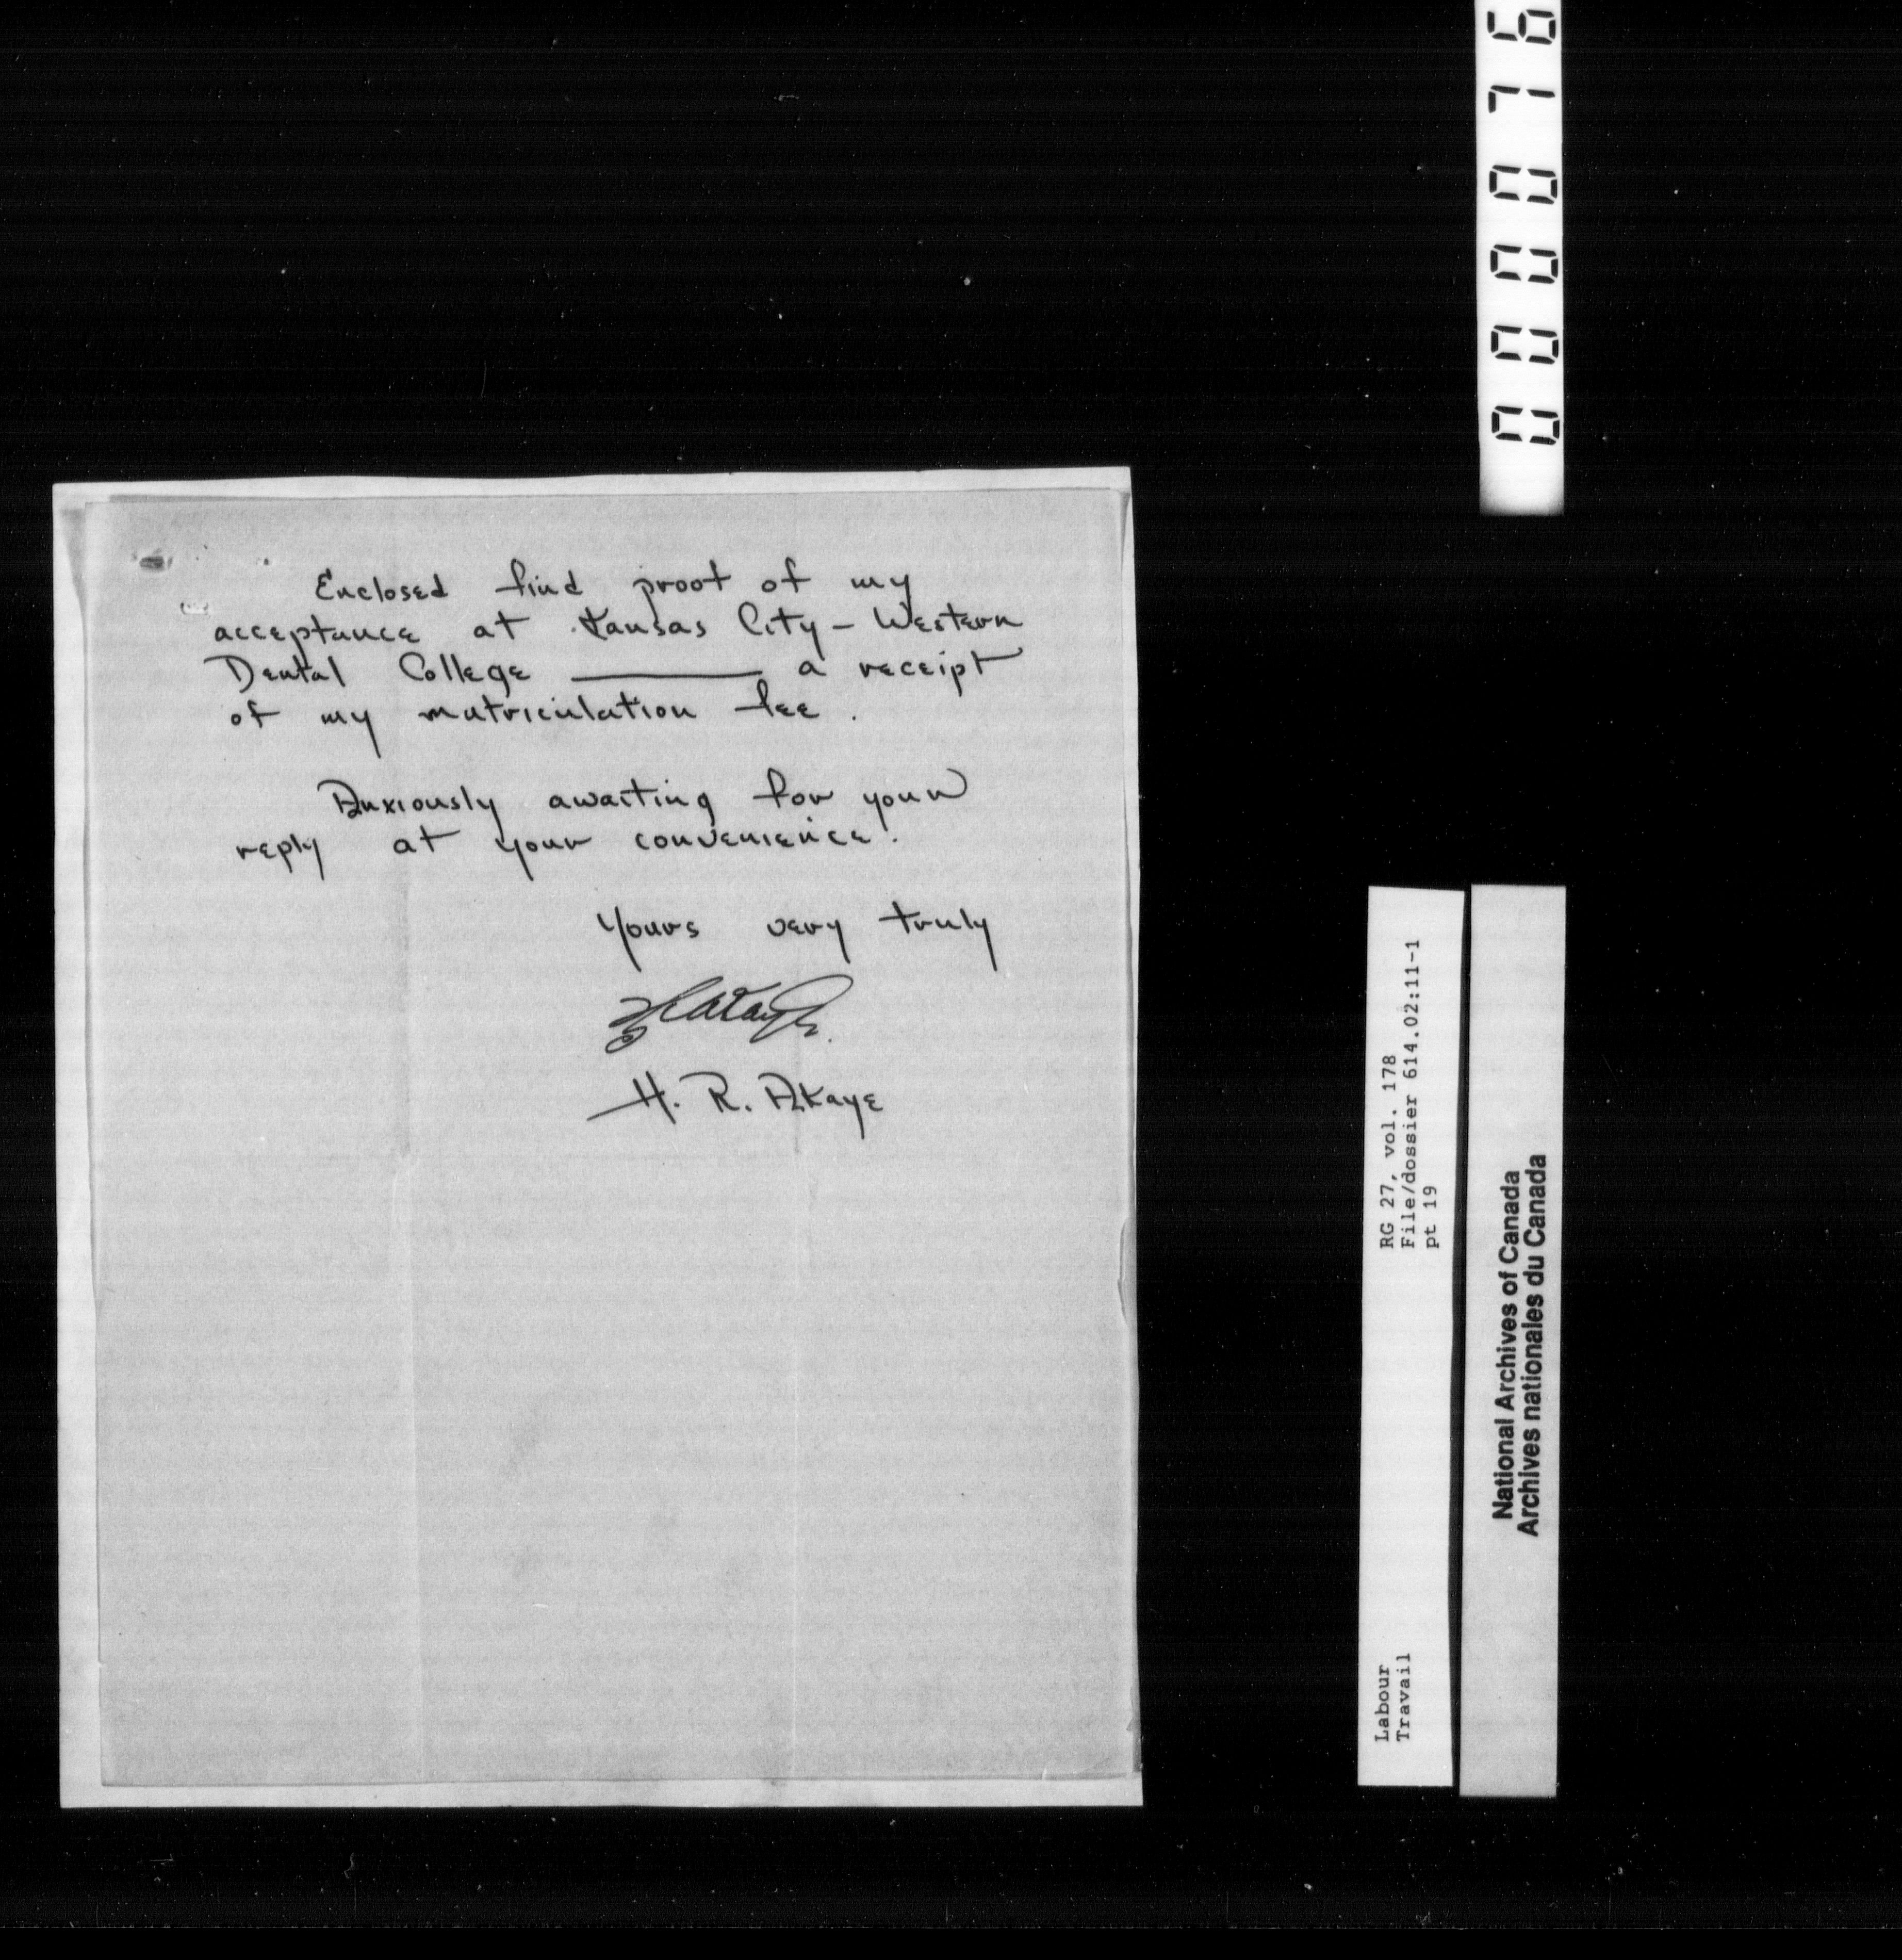 Enclosed find proof of my
acceptance at Kansas City - Western
Dental College ——— a receipt
of my matriculation fee.
Anxiously awaiting for your
reply at your convenience.
Yours very truly
H. R. Akaye
000076
Labour
Travail
RG 27, vol. 178
File/dossier 614.02:11-1
pt 19
National Archives of Canada
Archives nationales du Canada